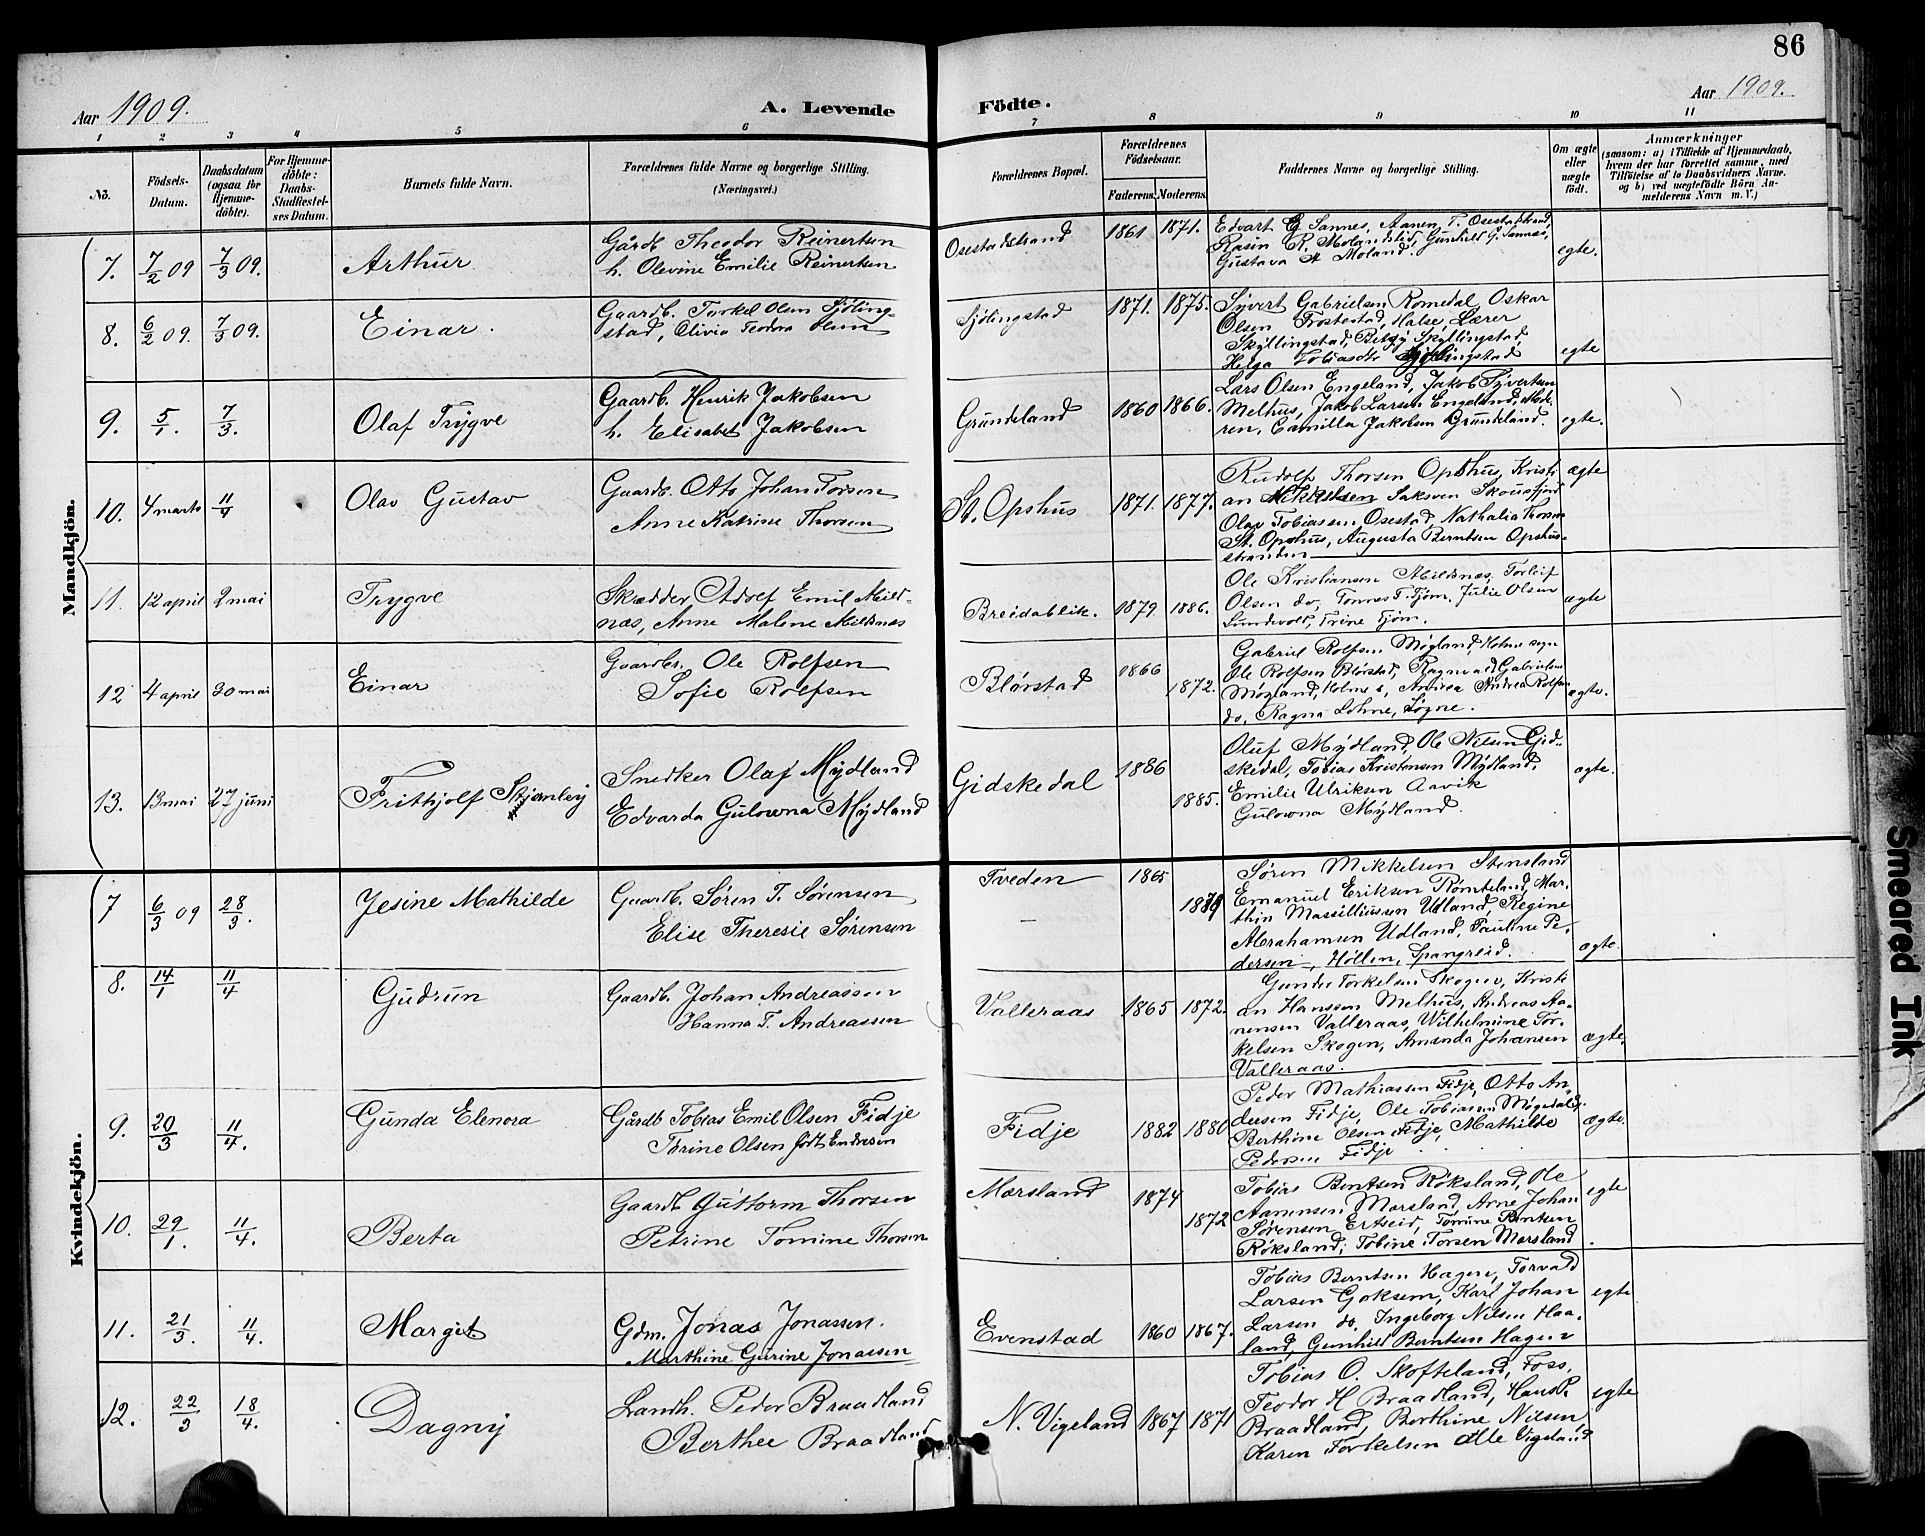 86
Aar 1909. A. Levende Födte. Aar 1909.
1 2 3 4 5 6 7 8 9 10 11
No.
Födsels-
Datum.
Daabsdatum
(ogsaa for
Hjemme-
döbte).
For Hjemme-
döbte:
Daabs-
Stadfæstel-
ses Datum.
Barnets fulde Navn.
Forældrenes fulde Navne og borgerlige Stilling.
(Næringsvei.)
Forældrenes Bopæl.
Forældrenes
Födselsaar.
Faderens. Moderens.
Faddernes Navne og borgerlige Stilling.
Om ægte
eller
uægte
födt.
Anmærkninger
(saasom: a) i Tilfælde af Hjemmedaab,
hvem der har forrettet samme, med
Tilföielse af to Daabsvidners Navne.
og b) ved uægtefödte Börn An-
melderens Navn m. V.)
Mandkjön.
7. 7/2 09 7/3 09. Arthur
Gårdb. Theodor Reinertsen
h. Olevine Emilie Reinertsen
Osestadstrand 1861 1871.
Edvart G Sannes, Aanen T. Osestadstrand,
Rasin R. Molandslid, Gunhild G. Sannes,
Gustava A Moland.
egte.
8. 6/2 09. 7/3 09. Einar.
Gaardb. Torkel Olsen Sjöling-
stad, Olivia Teodora Olsen
Sjölingstad 1871. 1875.
Syvert Gabrielsen Romedal Oskar
Olsen Frostestad, Halse, Lærer
Skyllingstad, Betzy Skyllingstad,
Helga Tobiasdtr Sjölingstad
egte
9. 5/1. 7/3. Olaf Trygve
Gaardb. Henrik Jakobsen
h. Elisabet Jakobsen
Grundeland 1860 1866.
Lars Olsen Engeland, Jakob Syvertsen
Melhus, Jakob Larsen Engeland, Mode-
ren, Camilla Jakobsen Grundeland.
egte.
10. 4 marts 11/4 Olav Gustav
Gaardb. Otto Johan Torsen
Anne Katrine Thorsen
St. Opshus 1871. 1877.
Rudolf Thorsen Opshus, Kristi-
an Mikkelsen Saksen Skousfjord
Olav Tobiassen Osestad, Nathalia Thorsen
St. Opshus, Augusta Berntsen Opshus-
stranden
ægte
11. 12 april 2 mai Trygve
Skrædder Adolf Emil Mild-
næs, Anne Malene Mildnæs
Breidablik. 1879 1886.
Ole Kristiansen Mildsnæs, Torleif
Olsen do, Tonnes T. Fjom, Julie Olsen
Lundevold, Trine Fjom.
ægte
12 4 april 20 mai Einar
Gaardbr. Ole Rolfsen
Sofie Rolfsen
Blörstad 1866 1872.
Gabriel Rolfsen Mögland, Holme sogn
Ole Rolfsen Blörstad, Ragnvald Gabrielsen
Mögland, Holme s, Andrea Rolfsen
do, Ragna Lohne, Søgne.
ægte.
13. 13 mai 27 juni Frithjolf Stjernley
Snedker Olaf Mydland
Edvarda Gulowna Mydland
Gidskedal 1886 1885.
Oluf Mydland, Ole Nilsen Gid-
skedal, Tobias Kristensen Mydland,
Emilie Ulriksen Aavik
Gulowna Mydland.
ægte.
Kvindekjön.
7 6/3 09 28/3. Jesine Mathilde
Gaardb. Søren T. Sørensen
Elise Theresie Sørensen
Tveden 1865
Søren Mikkelsen Stensland
Emanuel Eriksen Römteland, Mar-
thin Massilliussen Udland, Regine
Abrahamsen Udland, Pauline Pe-
dersen, Höllen, Spangreid.
ægte
8. 14/1 11/4 Gudrun
Gaardb. Johan Andreassen
Hanna T. Andreassen
Valleraas 1865 1872.
Gunder Torkelsen Skogen, Kristi-
an Hanssen Melhus, Andreas Aa-
nensen Valleraas, Wilhelmine Tor-
kelsen Skogen, Amanda Johansen
Valleraas.
ægte.
9. 20/3 11/4. Gunda Elenora
Gårdb Tobias Emil Olsen Fidje
Torine Olsen født Endresen
Fidje 1882 1880
Peder Mathiassen Fidje, Otto An-
dersen Fidje, Ole Tobiassen Møgedal,
Berthine Olsen Fidje, Mathilde
Pedersen Fidje
ægte.
10. 29/1. 11/4. Berta
Gaardb Guttorm Thorsen
Petrine Tomine Thorsen
Marsland 1874 1872
Tobias Bentsen Röksland, Ole
Aanensen Marsland, Arne Johan
Sørensen Ertseid, Tomine Bentsen
Röksland, Tobine Torsen Marsland.
egte
11. 21/3. 11/4. Margit
Gdm. Jonas Jonassen.
Marthine Gurine Jonassen
Evenstad 1860 1867.
Tobias Berntsen Hagen, Torvald
Larsen Goksem, Karl Johan
Larsen do, Ingeborg Nilsen Haa-
land, Gunhild Berntsen Hagen
egte
12. 22/3 18/4. Dagny
Landh. Peder Braadland
Berthee Braadland
N. Vigeland 1867 1871
Tobias O. Skofteland, Foss,
Teodor H Braadland, Hans P.
Braadland, Berthine Nilsen,
Karen Torkelsen alle Vigeland
egte
Smeared Ink